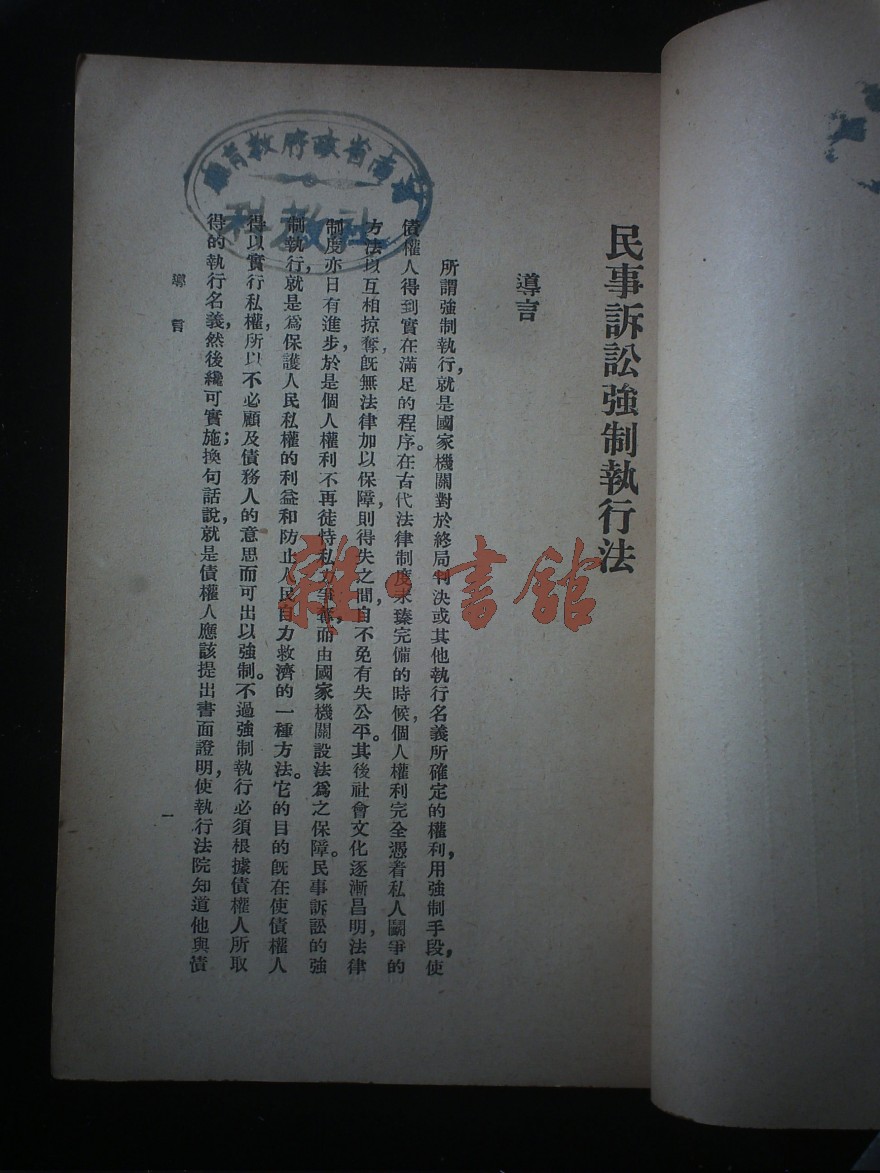 民事訴訟強制執行法
導言
所謂強制執行，就是國家機關對於終局判決或其他執行名義所確定的權利，用強制手段，使
債權人得到實在滿足的程序。在古代法律制度未臻完備的時候，個人權利完全憑着私人鬭爭的
方法以互相掠奪，既無法律加以保障，則得失之間，自不免有失公平。其後社會文化逐漸昌明，法律
制度亦日有進步，於是個人權利不再徒恃私力爭奪，而由國家機關設法爲之保障。民事訴訟的強
制執行，就是爲保護人民私權的利益和防止人民自力救濟的一種方法。它的目的既在使債權人
得以實行私權，所以不必顧及債務人的意思而可出以強制。不過強制執行必須根據債權人所取
得的執行名義，然後纔可實施；換句話說，就是債權人應該提出書面證明，使執行法院知道他與債
導言
一
南省政府教育
社教科
雜·書館